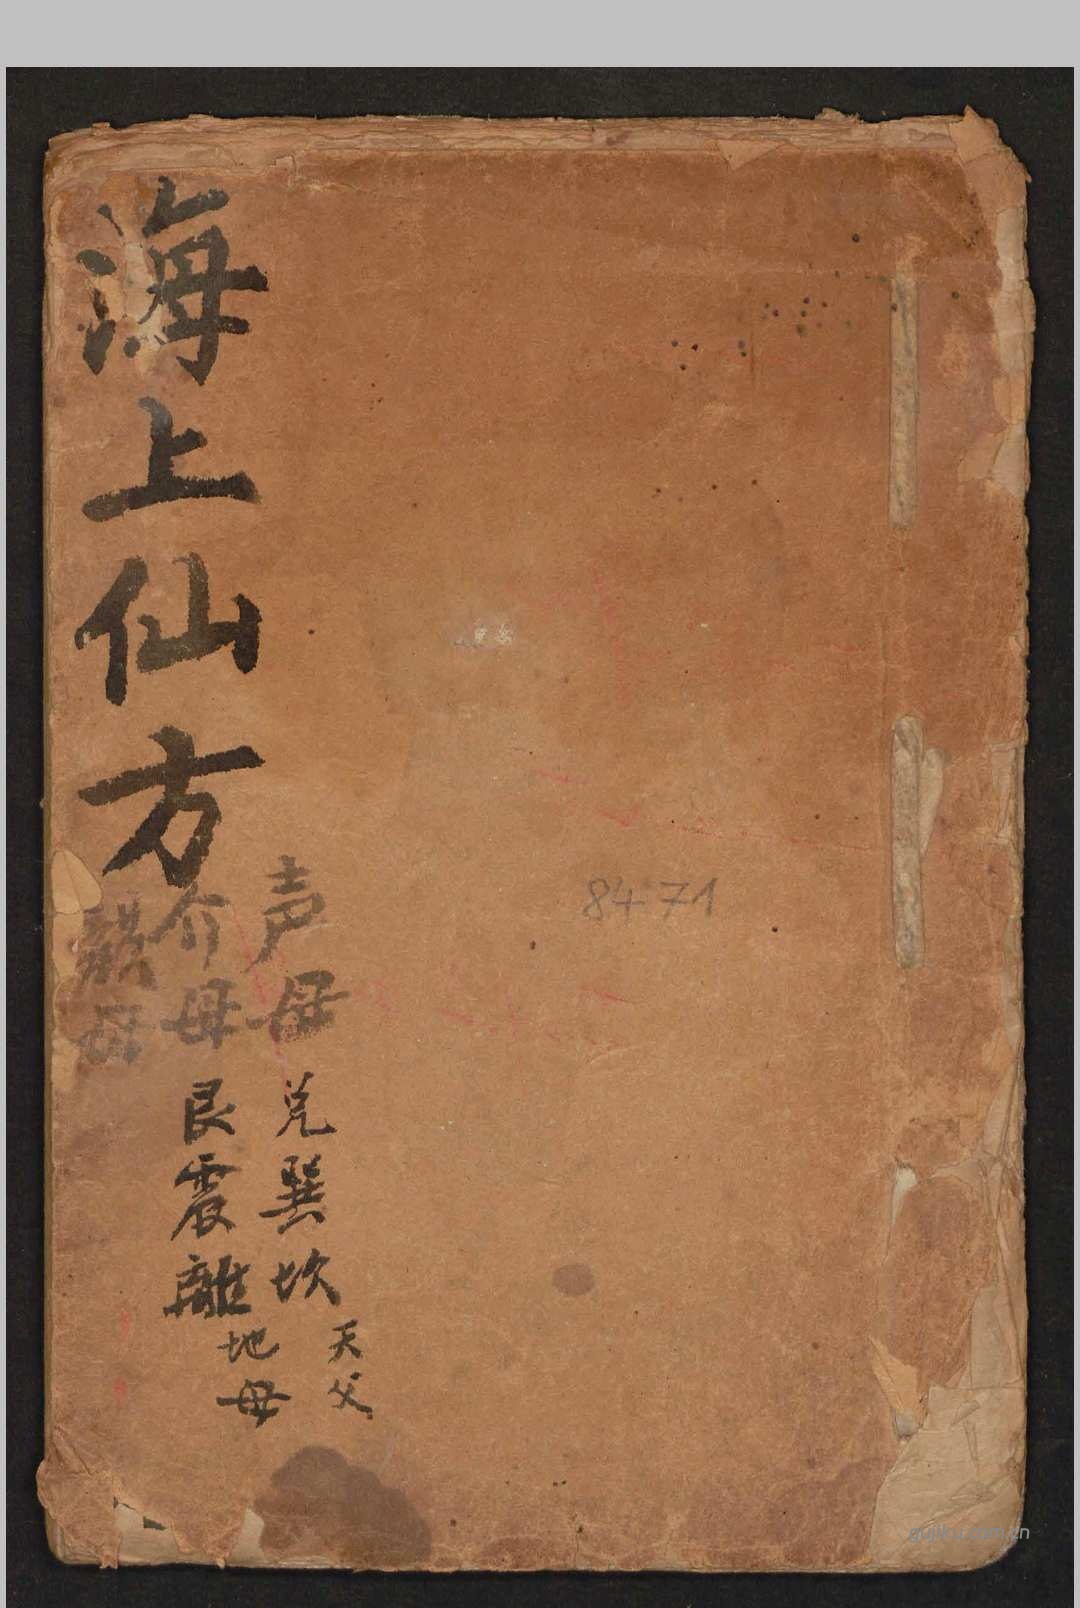 海上仙方
声母
介母
韻母
兑巽坎
天父
艮震離
地母
8471
gujiku.com.cn